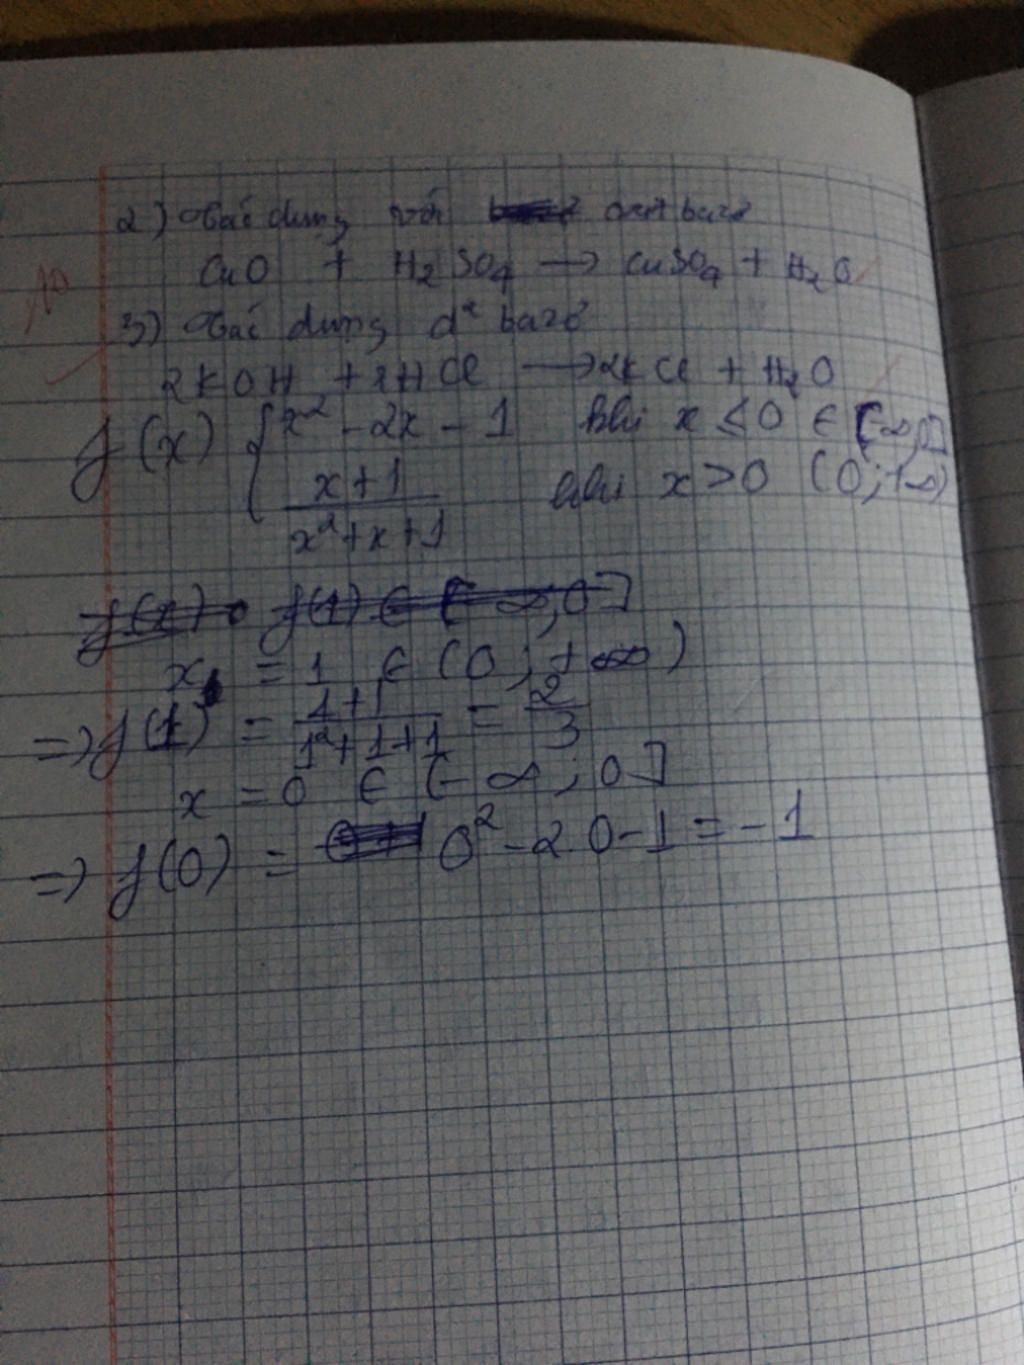 2) Tác dụng với oxit bazơ
CuO + H₂SO₄ → CuSO₄ + H₂O
3) Tác dụng d² bazơ
2KOH + 2HCl → 2KCl + H₂O
f(x) { x² - 2x - 1 khi x ≤ 0 ∈ (-∞,0]
x+1 / x²+x+1 khi x > 0 (0;+∞)
f(1) ∈ (-∞,0]
x = 1 ∈ (0;+∞)
=> f(1) = 1+1 / 1²+1+1 = 2/3
x = 0 ∈ (-∞;0]
=> f(0) = 0² - 2.0 - 1 = -1